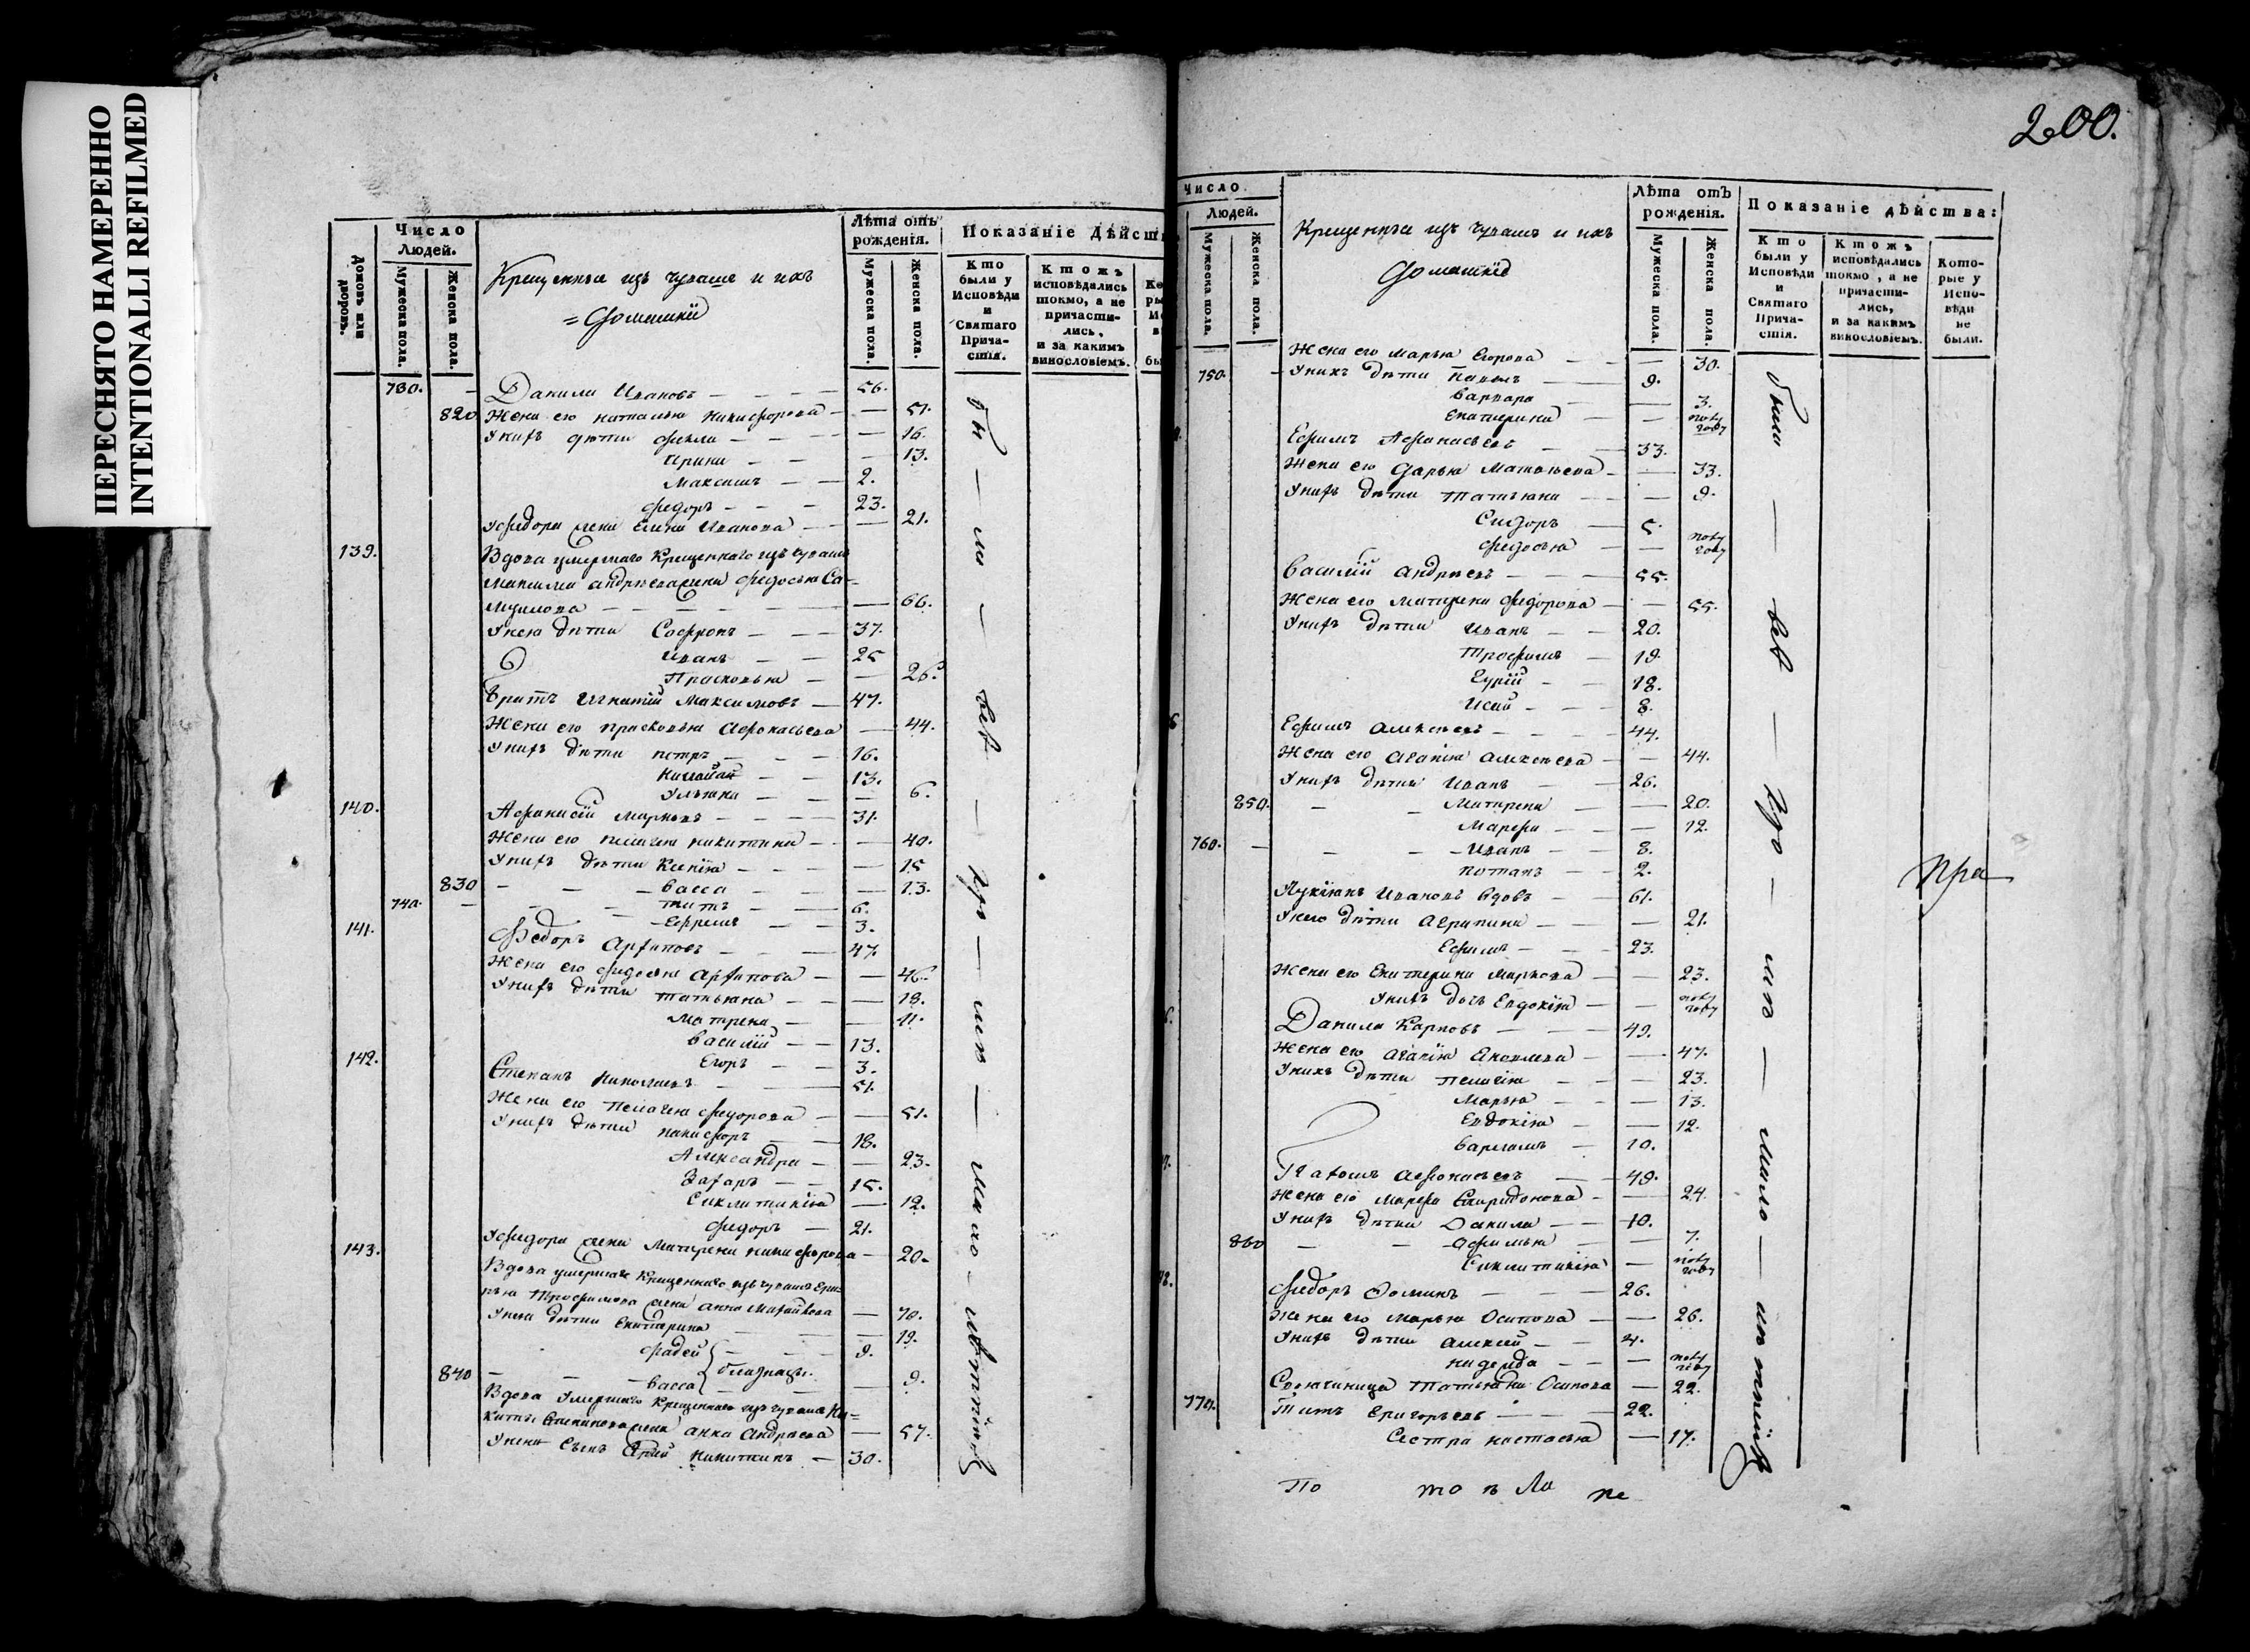 ПЕРЕСНЯТО НАМЕРЕННО
INTENTIONALLI REFILMED
Домовъ или дворовъ.
Число Людей.
Мужеска пола.
Женска пола.
Крещенные изъ чувашъ и ихъ
= Домашнiе
Лѣта отъ рожденiя.
Мужеска пола.
Женска пола.
Показанiе Дѣйст
Кто были у Исповѣди и Святаго Прича-стiя.
Ктожъ исповѣдались токмо, а не причасти-лись, и за какимъ винословiемъ.
730. Данила Ивановъ 56.
820 Жена его наталья никифорова 51.
Унихъ дѣти фекла 16.
Ирина 13.
Максимъ 2.
федоръ 23.
Уфедора жена Елена Иванова 21.
139. Вдова умершаго Крещеннаго изъ чувашъ
андреева жена федосья Са=
муилова 66.
Унею дѣти Софронъ 37.
Иванъ 25
Прасковья 26.
братъ Игнатiй Максимовъ 47.
Жена его прасковья Афонасьева 44.
Унихъ дѣти петръ 16.
николай 13.
Ульяна 6.
140. Афанасiй Марковъ 31.
Жена его пелагея никитина 40.
Унихъ дѣти Ксенiя 15
830 васса 13.
740. титъ 6.
Ефремъ 3.
141. Федоръ Архиповъ 47.
Жена его федосья Архипова 46.
Унихъ дѣти татьяна 18.
Матрена 11.
василiй 13.
Егоръ 3.
142. Степанъ Николаевъ 51.
Жена его пелагея федорова 51.
Унихъ дѣти никифоръ 18.
Александра 23.
Захаръ 15.
Сиклитикiя 12.
федоръ 21.
Уфедора жена Матрена никифорова 20.
143. Вдова умершаго Крещеннаго изъ чувашъ
Трофимова жена анна 70.
Унеи дѣти Екатерина 19.
фадей 9.
близнецы.
840 васса 9.
Вдова Умершаго Крещеннаго изъ чувашъ Ни=
киты Степанова жена анна Андреева 57.
Унеи сынъ никитинъ 30.
бы — ли — всѣ — пр — мѣ — мало — лѣтнiихъ
200.
Число
Людей.
Мужеска пола.
Женска пола.
Крещенные изъ чувашъ и ихъ
Домашнiе
Лѣта отъ рожденiя.
Мужеска пола.
Женска пола.
Показанiе дѣйства:
Кто были у Исповѣди и Святаго Прича-стiя.
Ктожъ исповѣдались токмо, а не причасти-лись, и за какимъ винословiемъ.
Кото-рые у Испо-вѣди не были.
Жена его марья Егорова 30.
750. Унихъ дѣти Павелъ 9.
варвара 3.
Екатерина полу году
Ефимъ Афанасьевъ 33.
Жена его Дарья Матвѣева 33.
Унихъ дѣти татьяна 9.
Сидоръ 5.
федосья полу году
василiй андреевъ 55.
Жена его матрена федорова 55.
Унихъ дѣти Иванъ 20.
трофимъ 19.
Гурiй 18.
Исай 8.
Ефимъ алексѣевъ 44.
Жена его агапiя алексѣева 44.
Унихъ дѣти Иванъ 26.
850. Матрена 20.
Марфа 12.
760. Иванъ 8.
потапъ 2.
Лукiянъ Ивановъ вдовъ 61.
Унего дѣти агрипина 21.
Ефимъ 23.
Жена его Екатерина маркова 23.
Унихъ дочь Евдокiя полу году
Данила Карповъ 49.
Жена его агапiя Яковлева 47.
Унихъ дѣти пелагiя 23.
Марья 13.
Евдокiя 12.
варламъ 10.
афонасьевъ 49.
Жена его марфа Спиридонова 24.
Унихъ дѣти Данила 10.
860 афимья 7.
Сиклитикiя полу году
федоръ Фоминъ 26.
Жена его марья Осипова 26.
Унихъ дѣти алексей 4.
надежда полу году
Своячиница татьяна Осипова 22.
770. Титъ Григорьевъ 22.
Сестра настасья 17.
были — всѣ — кро — мѣ — мало — лѣтнiихъ
Пра
По то в Ла не